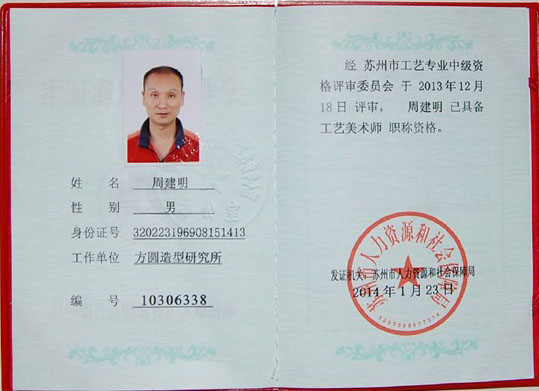 姓 名 周建明
性 别 男
身份证号 320223196908151413
工作单位 方圆造型研究所
编 号 10306338
经 苏州市工艺专业中级资
格评审委员会 于 2013年12月
18日 评审， 周建明 已具备
工艺美术师 职称资格。
苏州市人力资源和社会保障局
发证机关：苏州市人力资源和社会保障局
2014年1月23日